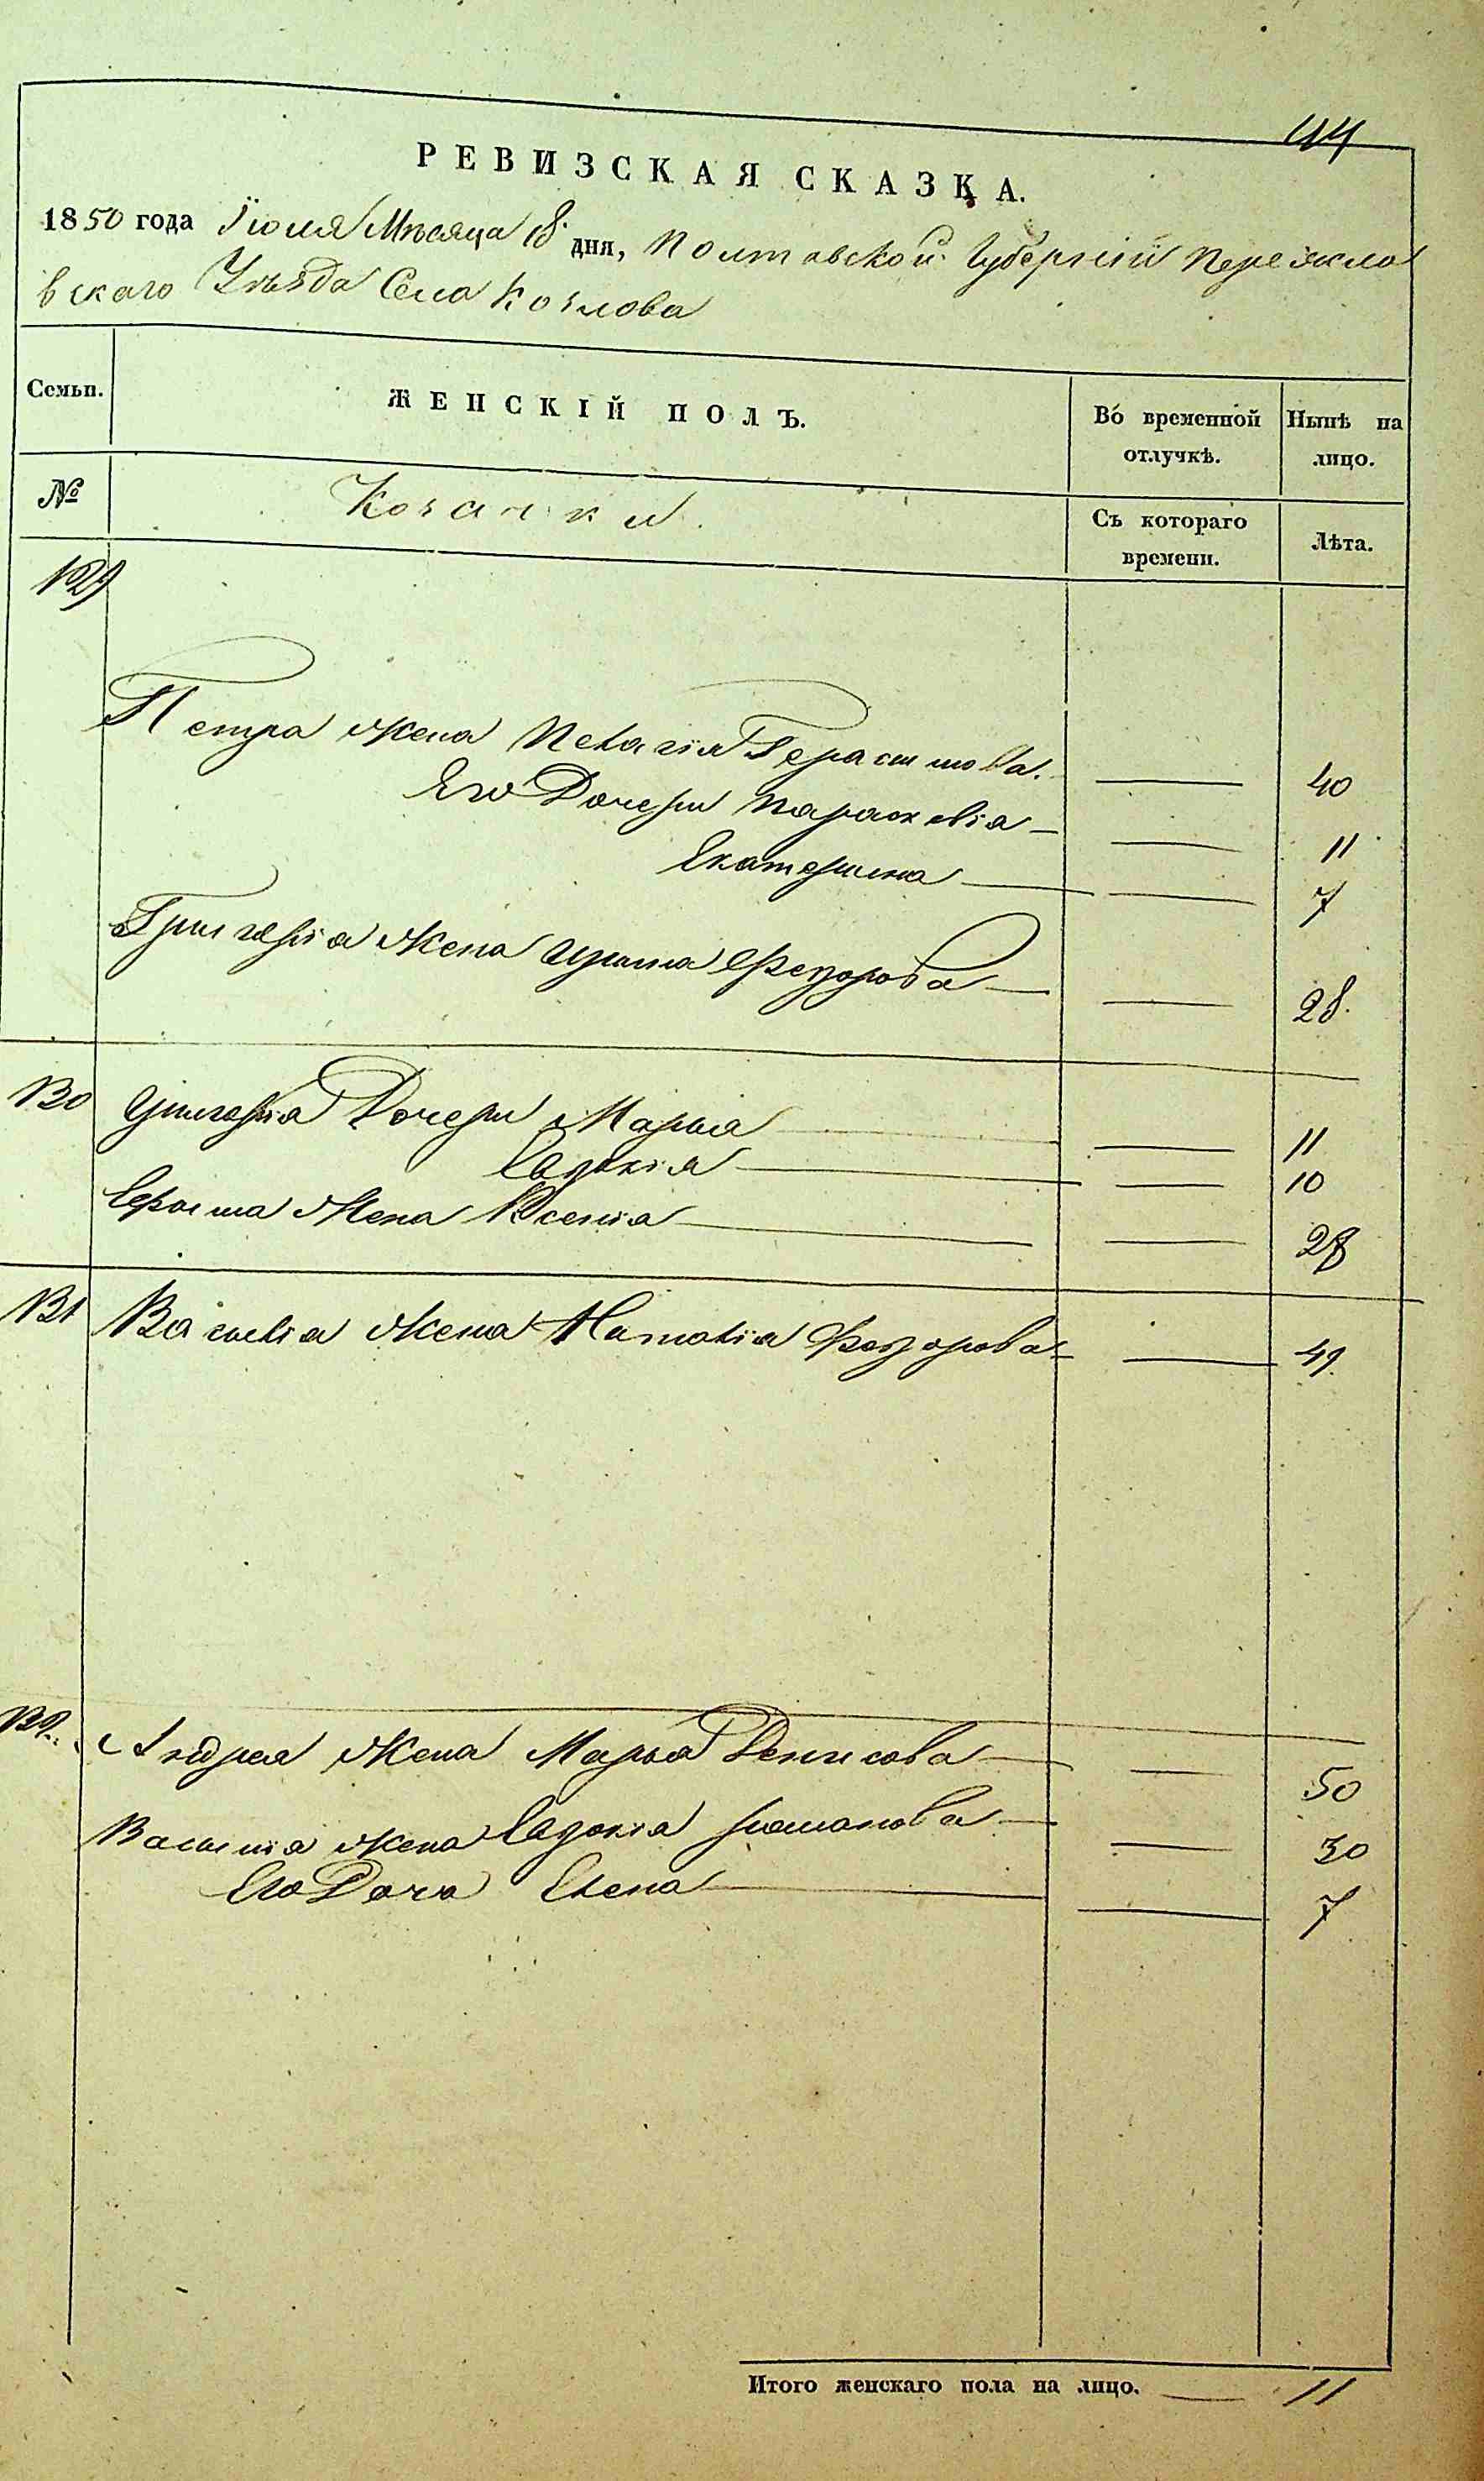 44
РЕВИЗСКАЯ СКАЗКА.
1850 года Іюля Мѣсяца 18 дня, Полтавской Губерніи Переясло
вскаго Уѣзда Села Козлова
Семьи. ЖЕНСКІЙ ПОЛЪ. Во временной отлучкѣ. Нынѣ на лицо.
№ Козачки. Съ котораго времени. Лѣта.
129
Петра жена Пелагія Герасимова. — 40
Его Дочери Параскевія — 11
Екатерина — 7
Григорія жена Ирина Федорова — 28.
130 Григорія Дочери Марья — 11
Евдокія — 10
Ефима Жена Ксенія — 28
131 Василія Жена Наталія Федорова — 49.
132. Андрея Жена Марья Денисова — 50
Василія жена Евдокія Романова — 30
Его Дочь Елена — 7
Итого женскаго пола на лицо. — 11